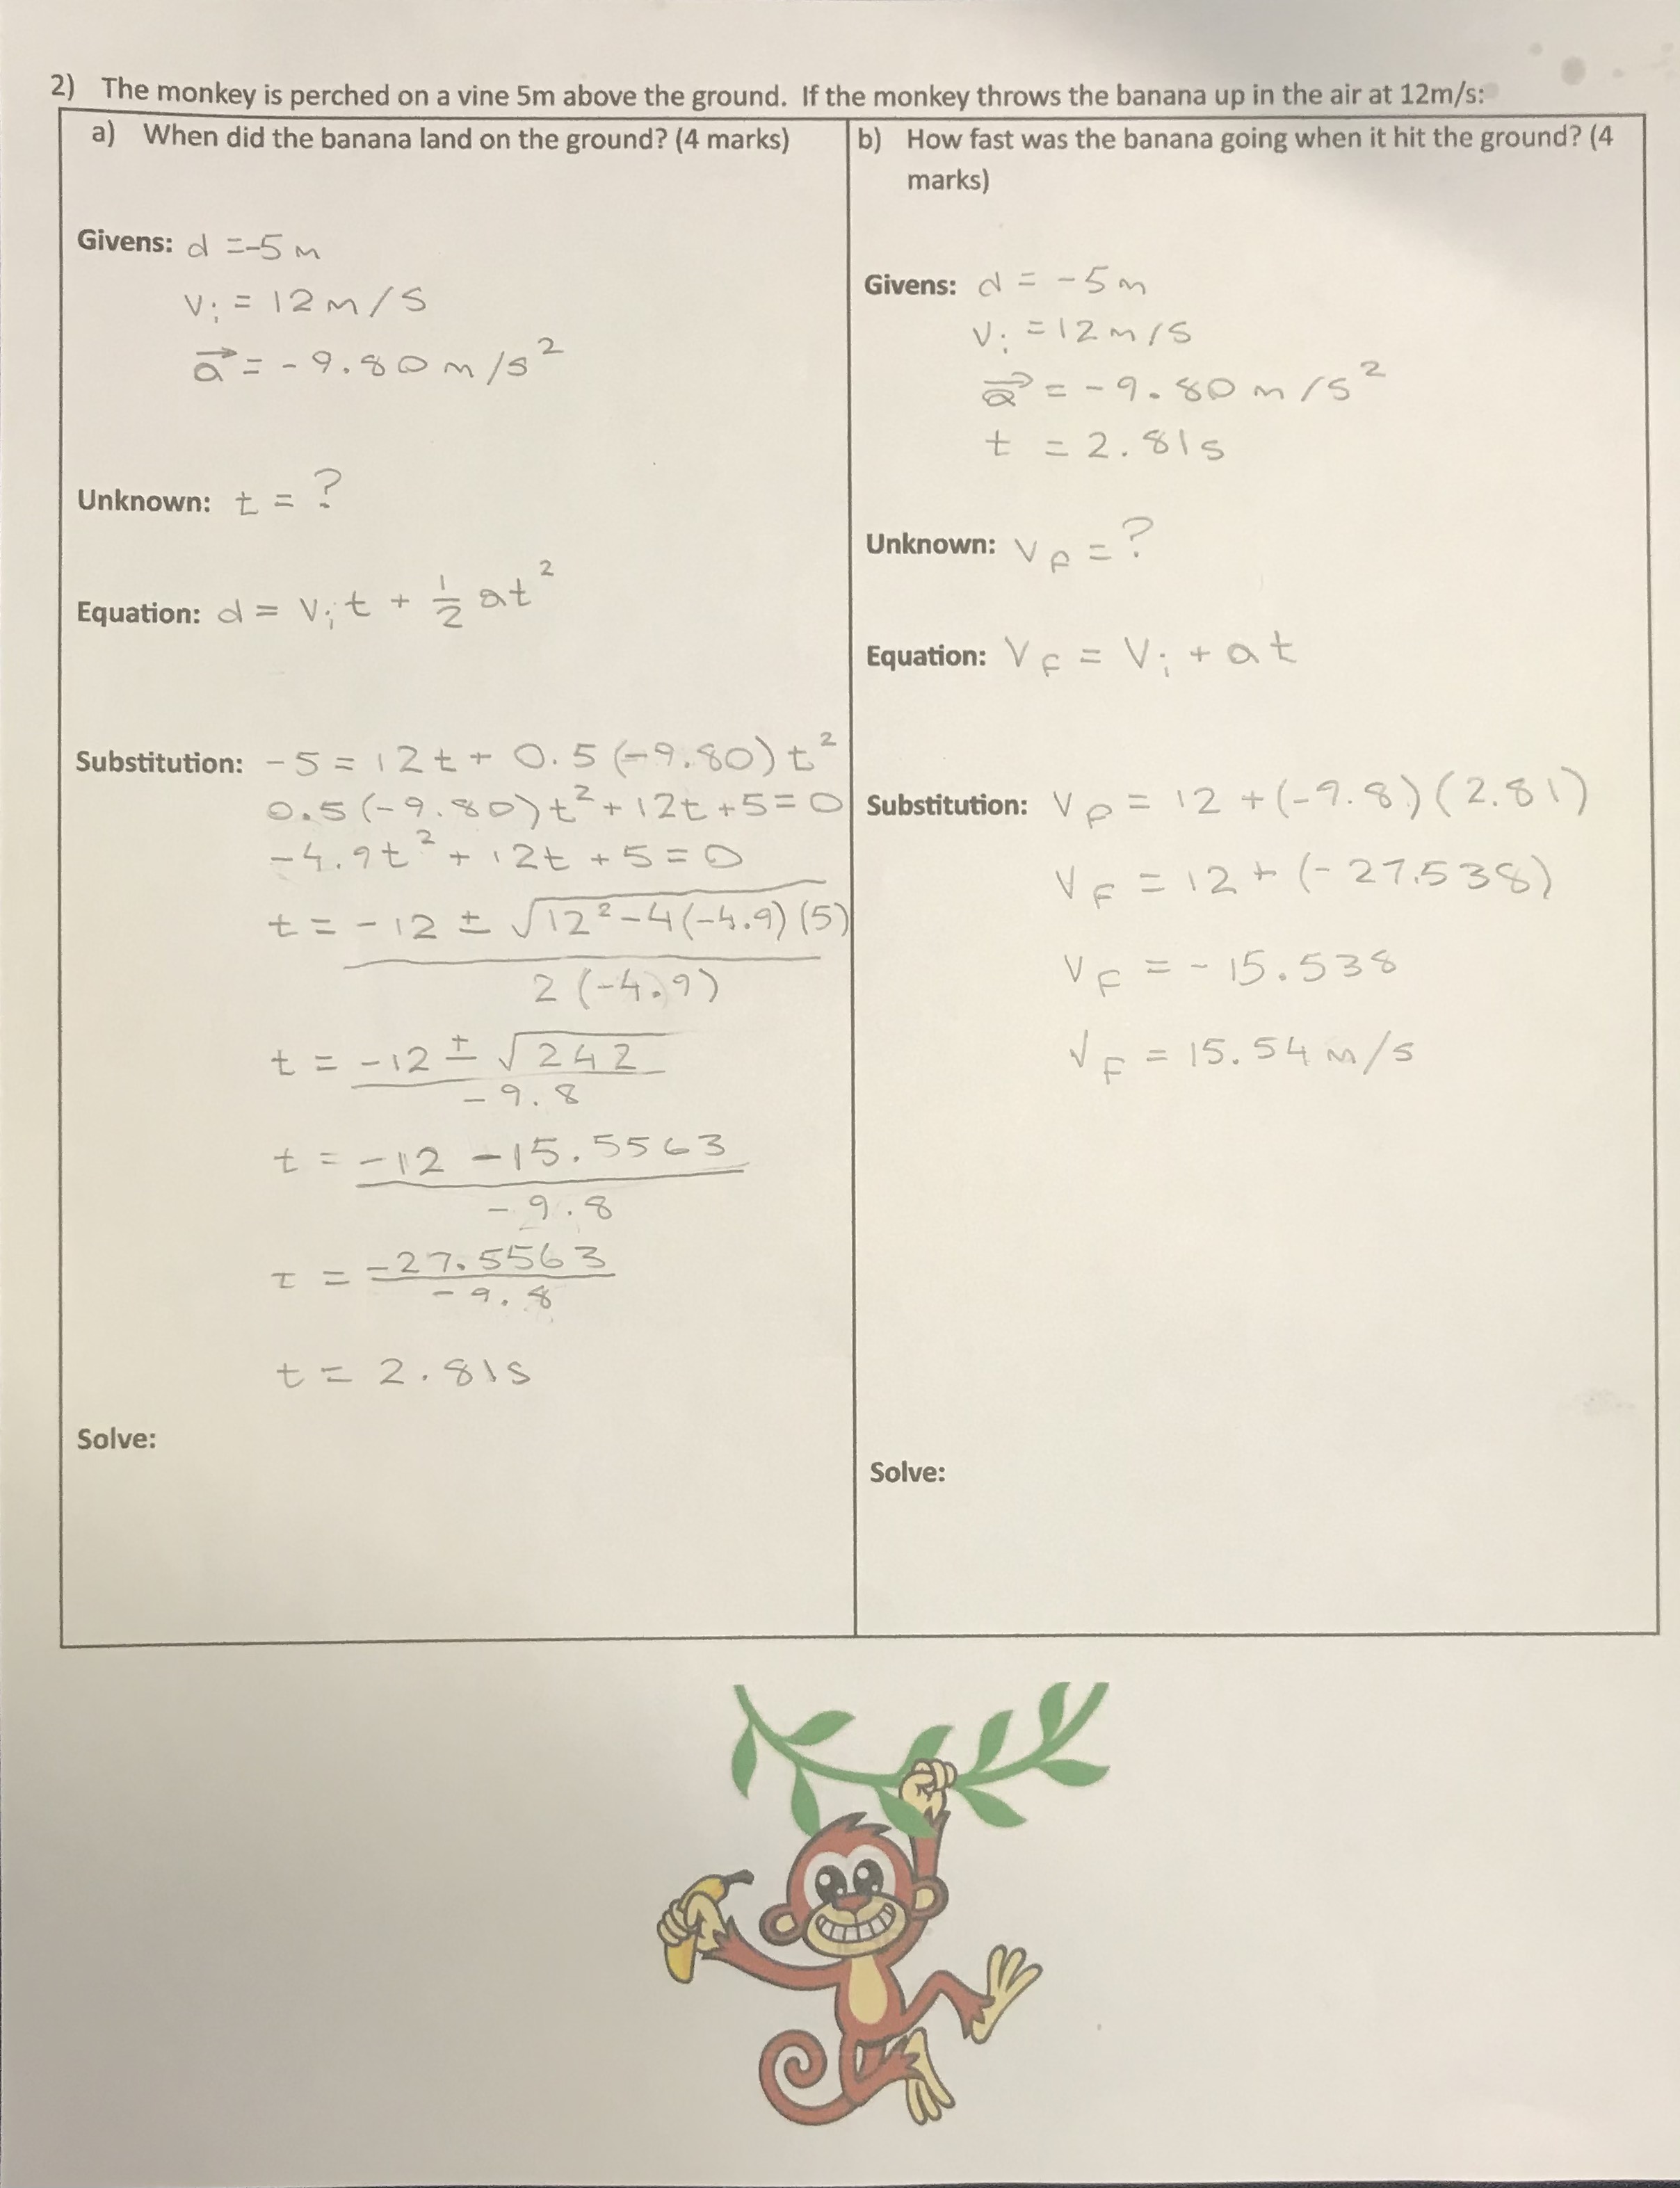 2) The monkey is perched on a vine 5m above the ground. If the monkey throws the banana up in the air at 12m/s:
a) When did the banana land on the ground? (4 marks)
Givens: d = -5 m
vᵢ = 12 m/s
a⃗ = -9.80 m/s²
Unknown: t = ?
Equation: d = vᵢt + ½ at²
Substitution: -5 = 12t + 0.5 (-9.80) t²
0.5 (-9.80) t² + 12t + 5 = 0
-4.9t² + 12t + 5 = 0
t = -12 ± √12² - 4(-4.9)(5)
2 (-4.9)
t = -12 ± √242
-9.8
t = -12 - 15.5563
-9.8
t = -27.5563
-9.8
t = 2.81s
Solve:
b) How fast was the banana going when it hit the ground? (4
marks)
Givens: d = -5m
vᵢ = 12 m/s
a⃗ = -9.80 m/s²
t = 2.81s
Unknown: VF = ?
Equation: VF = Vᵢ + at
Substitution: VF = 12 + (-9.8) (2.81)
VF = 12 + (-27.538)
VF = -15.538
VF = 15.54 m/s
Solve: